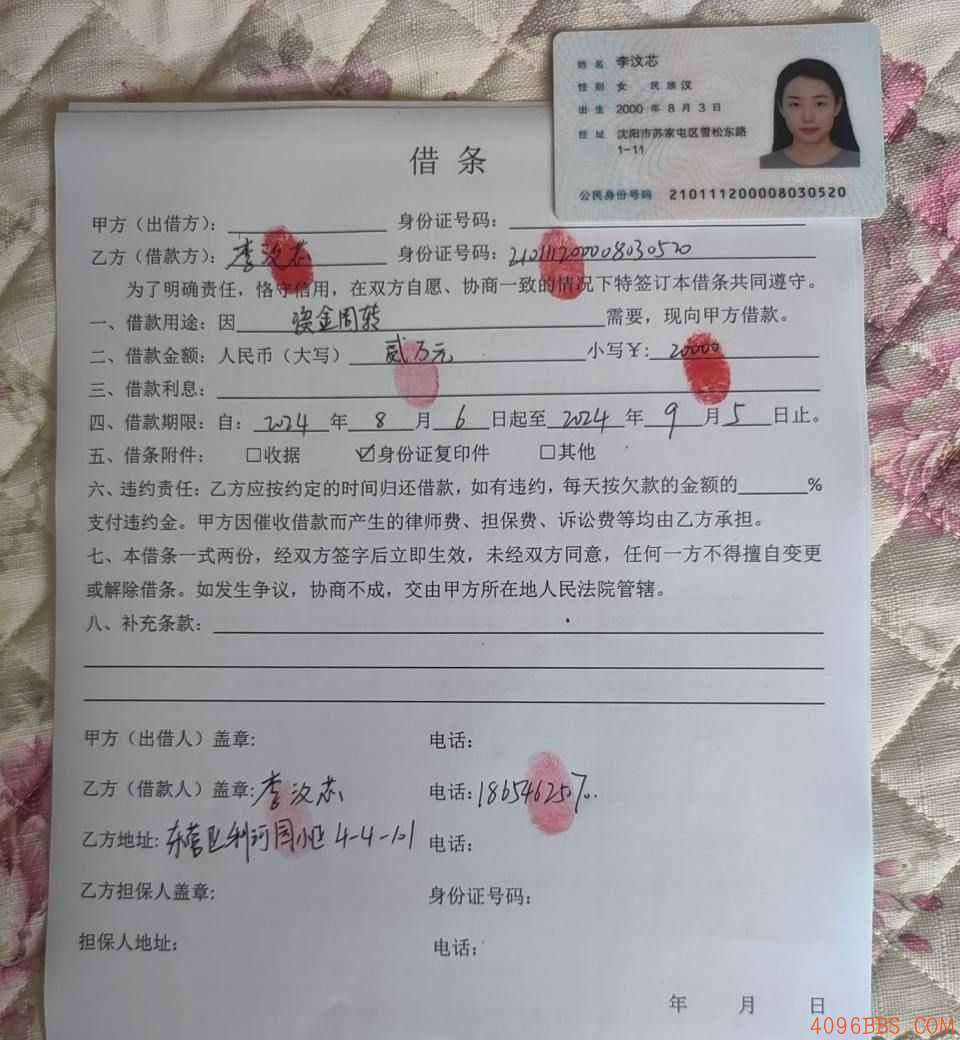 姓名 李汶芯
性别 女 民族 汉
出生 2000 年 8 月 3 日
住址 沈阳市苏家屯区雪松东路
1-11
公民身份号码 210111200008030520
借 条
甲方（出借方）： 身份证号码：
乙方（借款方）：李汶芯 身份证号码：210111200008030520
为了明确责任，恪守信用，在双方自愿、协商一致的情况下特签订本借条共同遵守。
一、借款用途：因 资金周转 需要，现向甲方借款。
二、借款金额：人民币（大写） 贰万元 小写￥：20000
三、借款利息：
四、借款期限：自：2024 年 8 月 6 日起至 2024 年 9 月 5 日止。
五、借条附件： □收据 ☑身份证复印件 □其他
六、违约责任：乙方应按约定的时间归还借款，如有违约，每天按欠款的金额的______%
支付违约金。甲方因催收借款而产生的律师费、担保费、诉讼费等均由乙方承担。
七、本借条一式两份，经双方签字后立即生效，未经双方同意，任何一方不得擅自变更
或解除借条。如发生争议，协商不成，交由甲方所在地人民法院管辖。
八、补充条款：
甲方（出借人）盖章: 电话：
乙方（借款人）盖章:李汶芯 电话：186546257
乙方地址: 东营区利河园小区 4-4-101 电话：
乙方担保人盖章: 身份证号码：
担保人地址: 电话：
年 月 日
4096BBS.COM